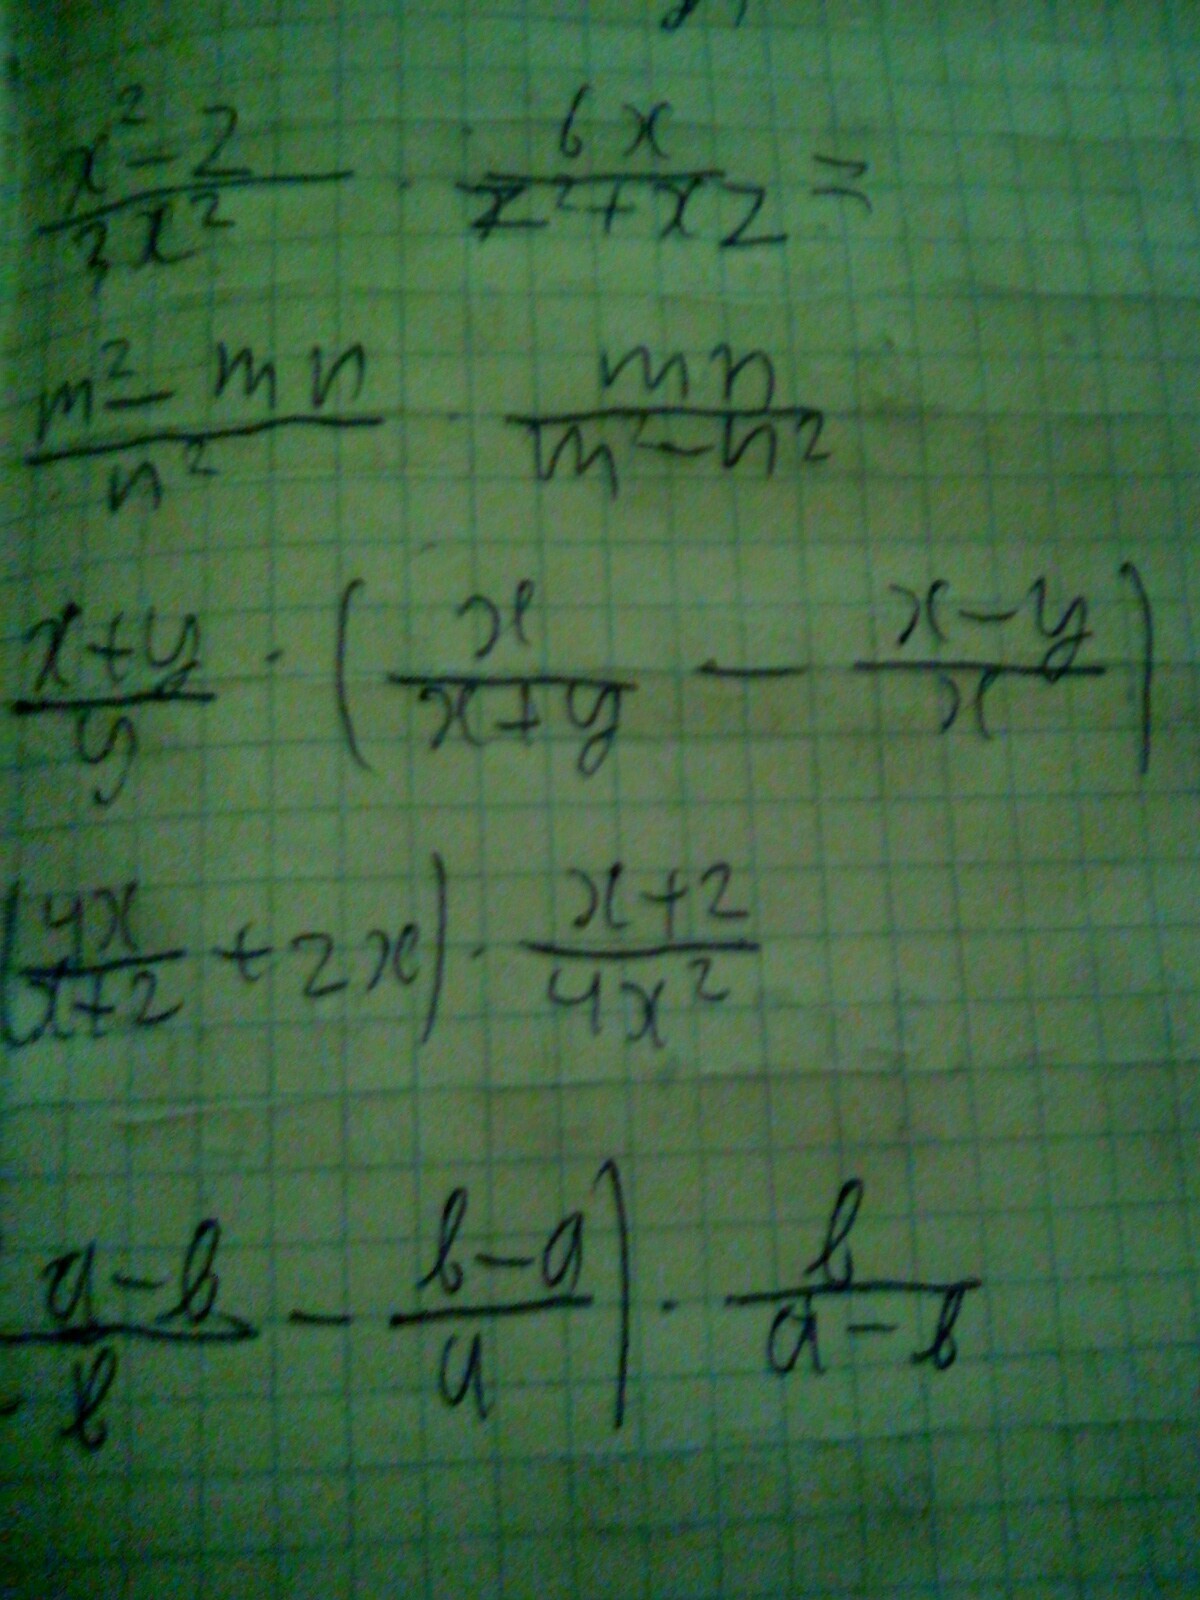 x² - 2 / 3x² · 6x / z² + xz =
m² - mn / n² · mn / m² - n²
x + y / y · ( x / x + y - x - y / x )
( 4x / x + 2 + 2x ) · x + 2 / 4x²
a - b / b - b - a / a ) · b / a - b